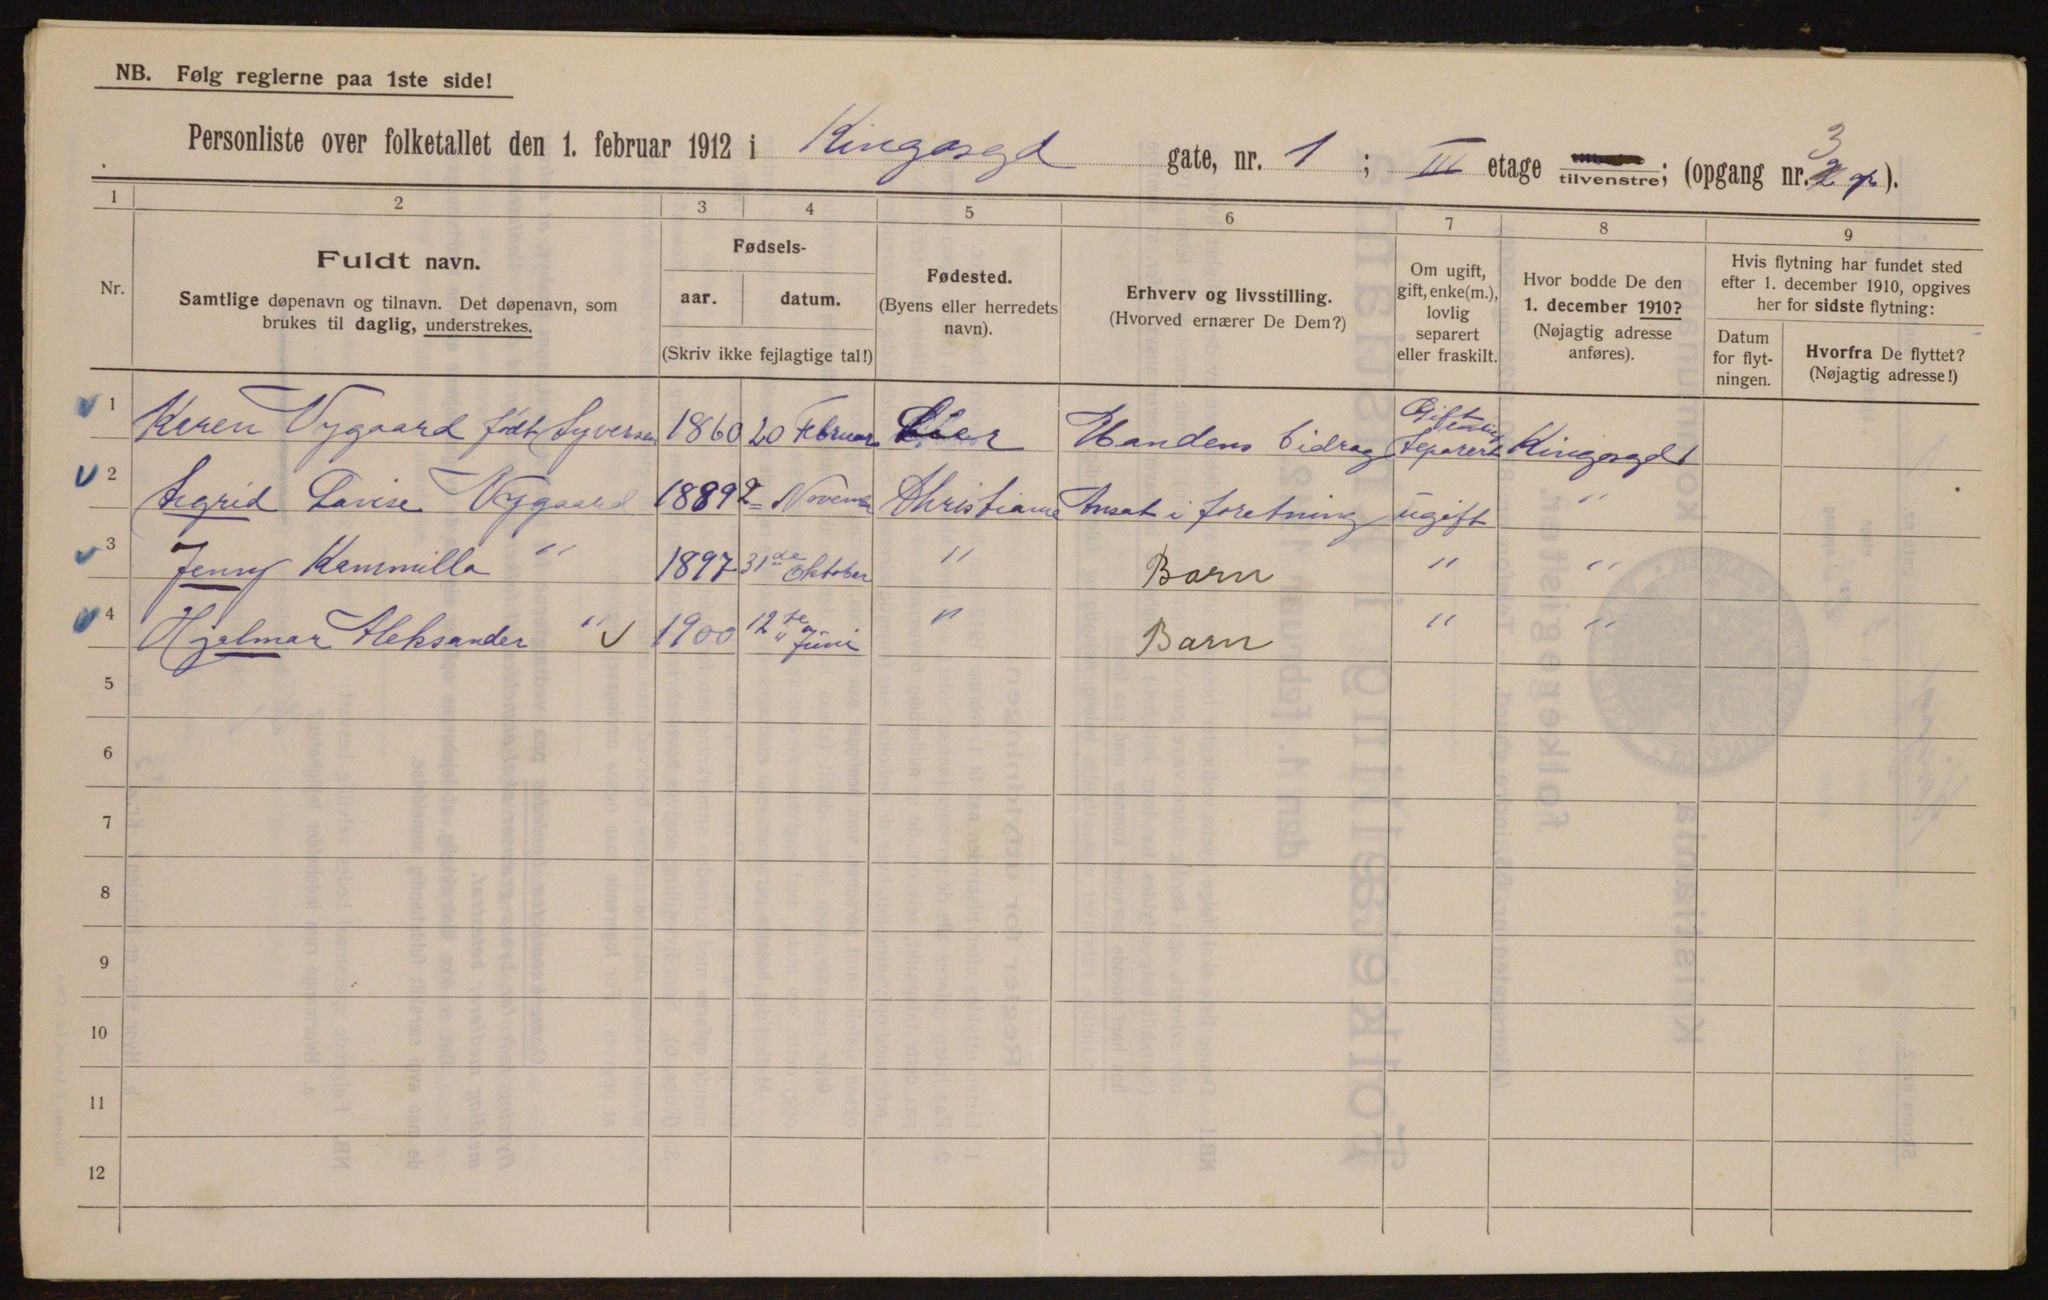 NB. Følg reglerne paa 1ste side!
Personliste over folketallet den 1. februar 1912 i Kingosgd gate, nr. 1 ; III etage tilvenstre; (opgang nr. 3 op).
1 2 3 4 5 6 7 8 9
Nr.
Fuldt navn.
Samtlige døpenavn og tilnavn. Det døpenavn, som
brukes til daglig, understrekes.
Fødsels-
aar. datum.
(Skriv ikke fejlagtige tal!)
Fødested.
(Byens eller herredets
navn).
Erhverv og livsstilling.
(Hvorved ernærer De Dem?)
Om ugift,
gift, enke(m.),
lovlig
separert
eller fraskilt.
Hvor bodde De den
1. december 1910?
(Nøjagtig adresse
anføres).
Hvis flytning har fundet sted
efter 1. december 1910, opgives
her for sidste flytning:
Datum
for flyt-
ningen.
Hvorfra De flyttet?
(Nøjagtig adresse!)
1 Karen Nygaard født Syversen 1860 20 Februar Lier Mandens bidrag Gift Separert Kingosgd 1
2 Sigrid Lovise Nygaard 1889 2 November Christiania Ansat i foretning ugift "
3 Jenny Kammilla " 1897 31de Oktober " Barn " "
4 Hjalmar Aleksander " 1900 12te Juni " Barn " "
5
6
7
8
9
10
11
12